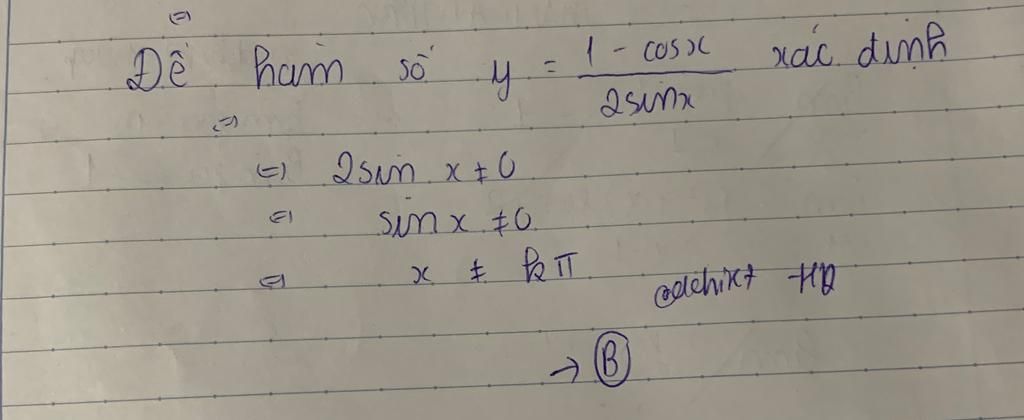 ⇔
Để hàm số y = (1 - cosx)/(2sinx) xác định
⇔
⇔ 2sin x ≠ 0
⇔ sin x ≠ 0
⇔ x ≠ kπ
→ B